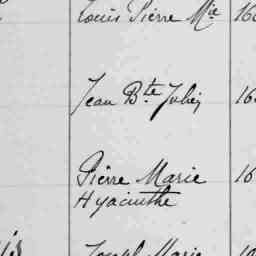 Louis Pierre Mie 16
Jean Bte Julien 16
Pierre Marie 16
Hyacinthe
Joseph Marie